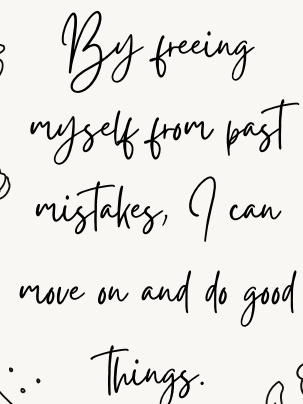 By freeing
myself from past
mistakes, I can
move on and do good
things.